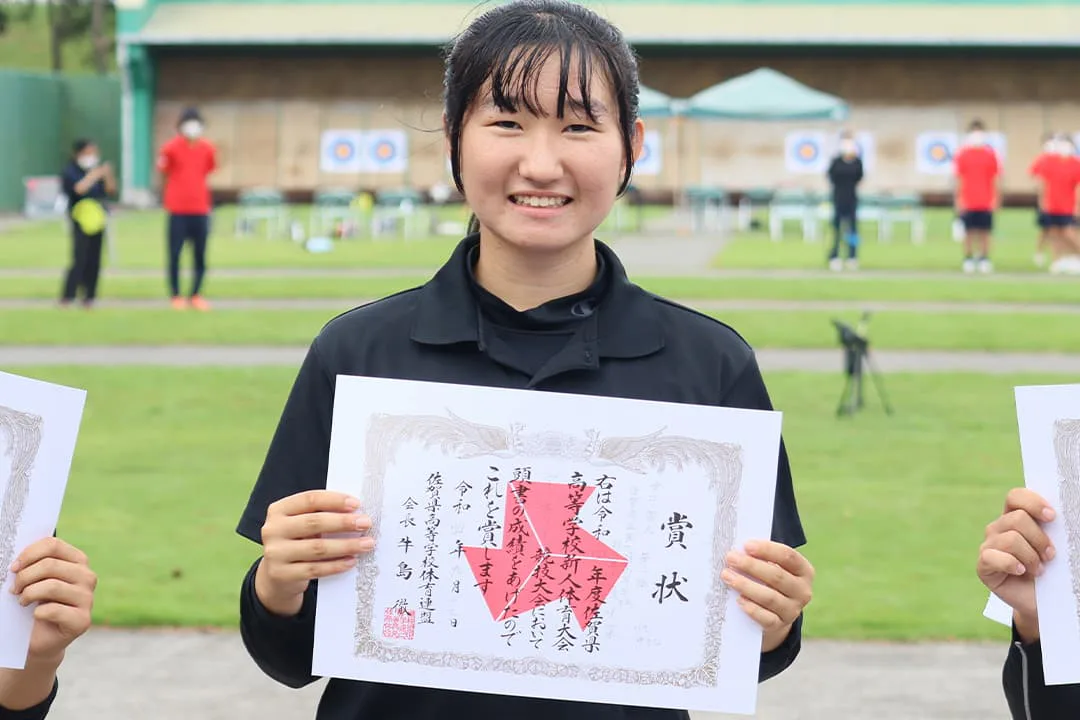 賞状
右は令和 年度佐賀県
高等学校新人体育大会
競技大会において
頭書の成績をあげたので
これを賞します
令和 年 月 日
佐賀県高等学校体育連盟
会長 牛島 徹